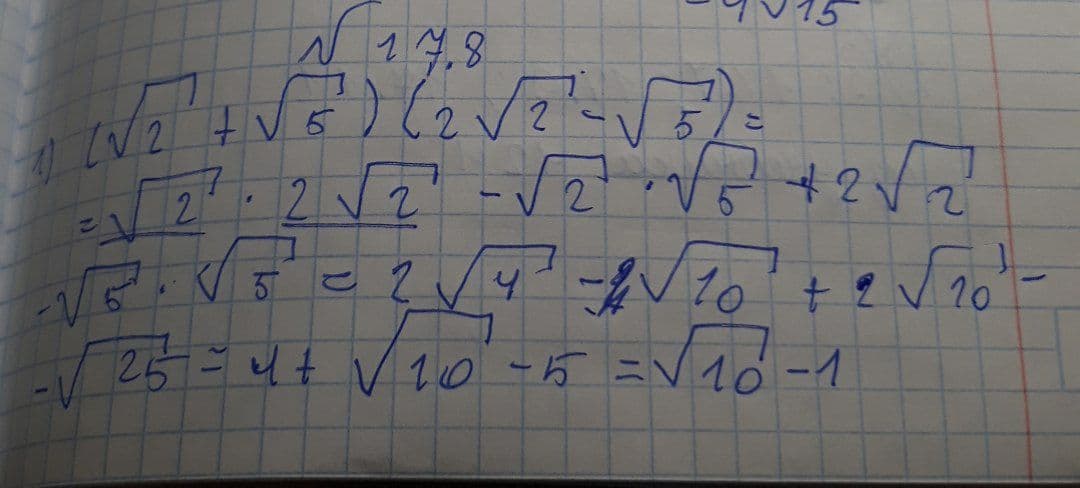 -4√15
√ 17.8
1) (√2 + √5) (2√2 - √5) =
= √2 · 2√2 - √2 · √5 + 2√2
-√5 · √5 = 2√4 - √10 + 2√10 -
-√25 = 4 + √10 - 5 = √10 - 1